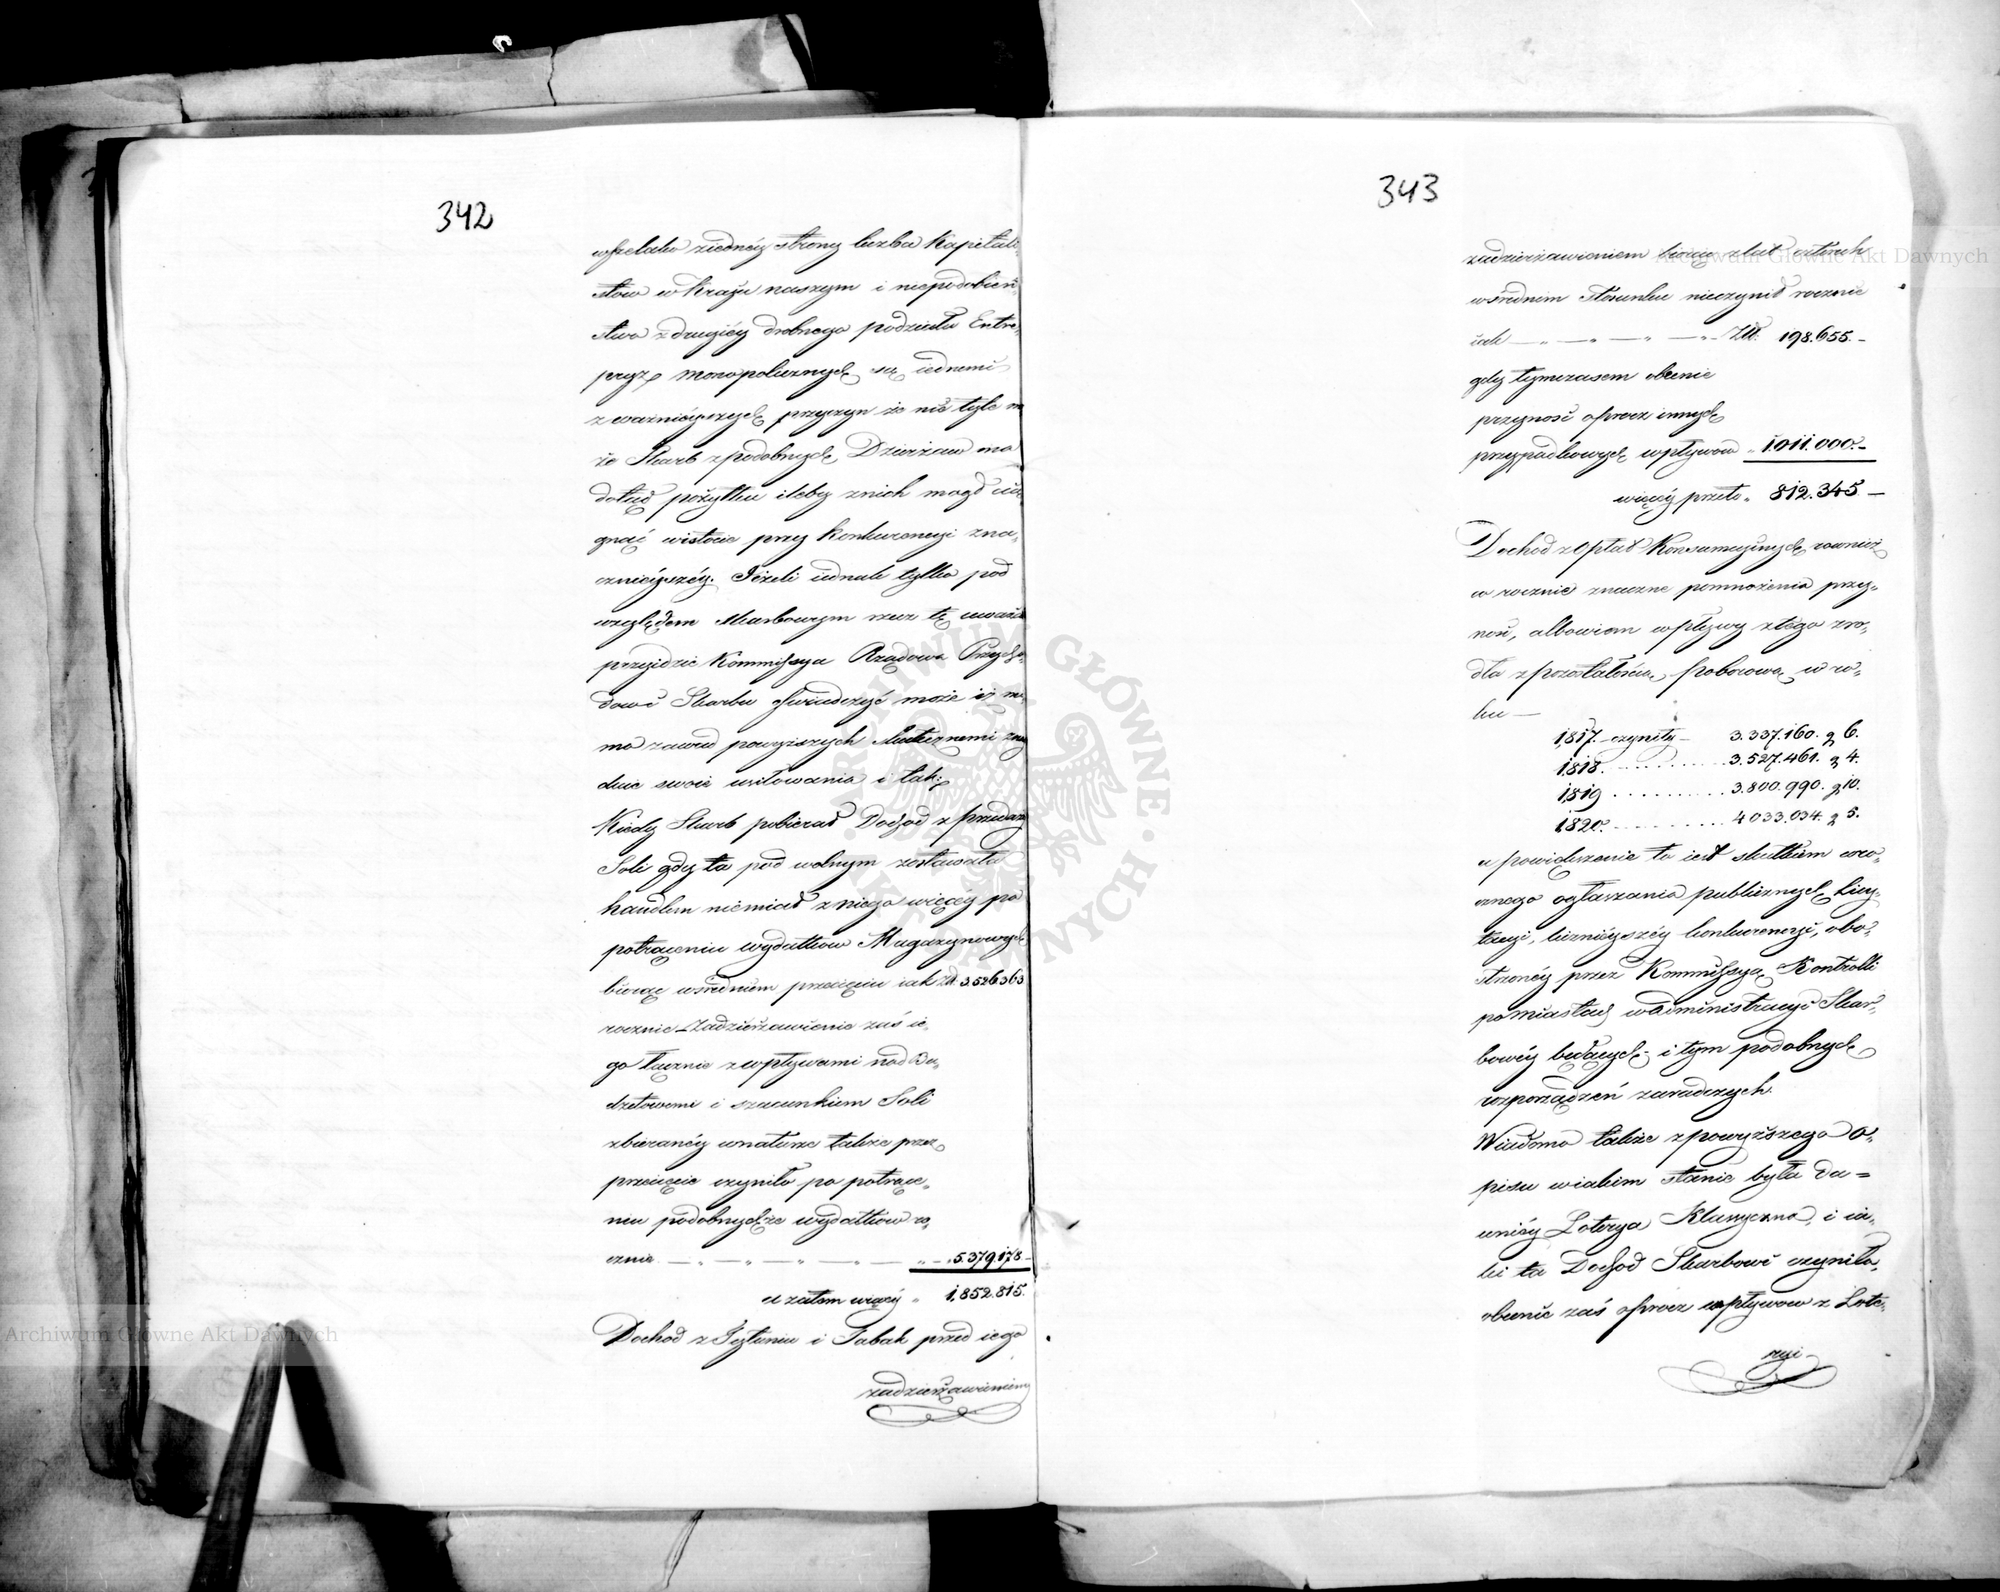 342
wszelako z iednéy strony liczba Kapitali-
stow w Kraju naszym i niepodobień-
stwo z drugiéy drobnego podziału Entre-
pryz Monopolicznych są iednemi
z ważnieyszych przyczyn że nie tyle
że Skarb z podobnych Dzierżaw ma
dotąd pożytku ileby z nich mogł cią-
gnąć wistocie przy Konkurencyi zna-
cznieyszéy. Jeżeli iednak tylko pod
względem Skarbowym rzecz tę uważać
przyidzie Kommissya Rządowa Przycho-
dow i Skarbu oświadczyć może iż
mo zawad powyższych skutecznemi
swoie usiłowania i tak:
Kiedy Skarb pobierał Dochod z przedaży
Soli gdy ta pod wolnym zostawała
handlem niemiał z niego więcéy po
potrąceniu wydatkow Magazynowych
biorąc w srednim przecięciu iak Zł. 3.526.363
rocznie – Zadzierżawienie zaś ie-
go łącznie z wpływami nad Bu-
dżetowemi i szacunkiem Soli
zbieranéy w naturze także przez
przecięcie czyniło po potrące-
niu podobnychże wydatkow ro-
cznie — „ — „ — „ — „ — „ — „ 5.379.178 –
a zatem więcéy „ 1,852.815.
Dochod z Tytuniu i Tabak przed iego
zadzierżawieniem
343
zadzierżawieniem biorąc z lat czterech
w srednim stosunku nieczynił rocznie
iak — „ — „ — „ — „ – Zł. 198.655. –
gdy tymczasem obecnie
przynosi oprocz innych
przypadkowych wpływow „ 1.011.000. –
więcéy przeto „ 812.345 —
Dochod z Opłat Konsumcyinych rownież
w rocznie znaczne pomnożenia przy-
nosi, albowiem wpływy z tego zro-
dła z pozostałością poborową w ro-
ku —
1,817. czyniły – 3.337.160. g 6.
1,818. . . . . . . . . . . 3.527.461. g 4.
1,819 . . . . . . . . . . 3.800.990. g 10.
1,820. . . . . . . . . . . 4 033.034. g 5.
a powiększenie to iest skutkiem wro-
cznego ogłaszania publicznych Licy-
tacyi, licznieyszéy konkurencyi, obo-
strzonéy przez Kommissyą Kontrolli
po miastach w administracyi Skar-
bowéy będących i tym podobnych
rozporządzeń zaradczych.
Wiadomo także z powyższego O-
pisu w iakim stanie była da=
wniéy Loterya Klassyczna, i ia-
ki ta Dochod Skarbowi czyniła,
obecnie zaś oprocz wpływow z Lote-
ryi –
Archiwum Główne Akt Dawnych
Archiwum Główne Akt Dawnych
ARCHIWUM GŁÓWNE AKT DAWNYCH